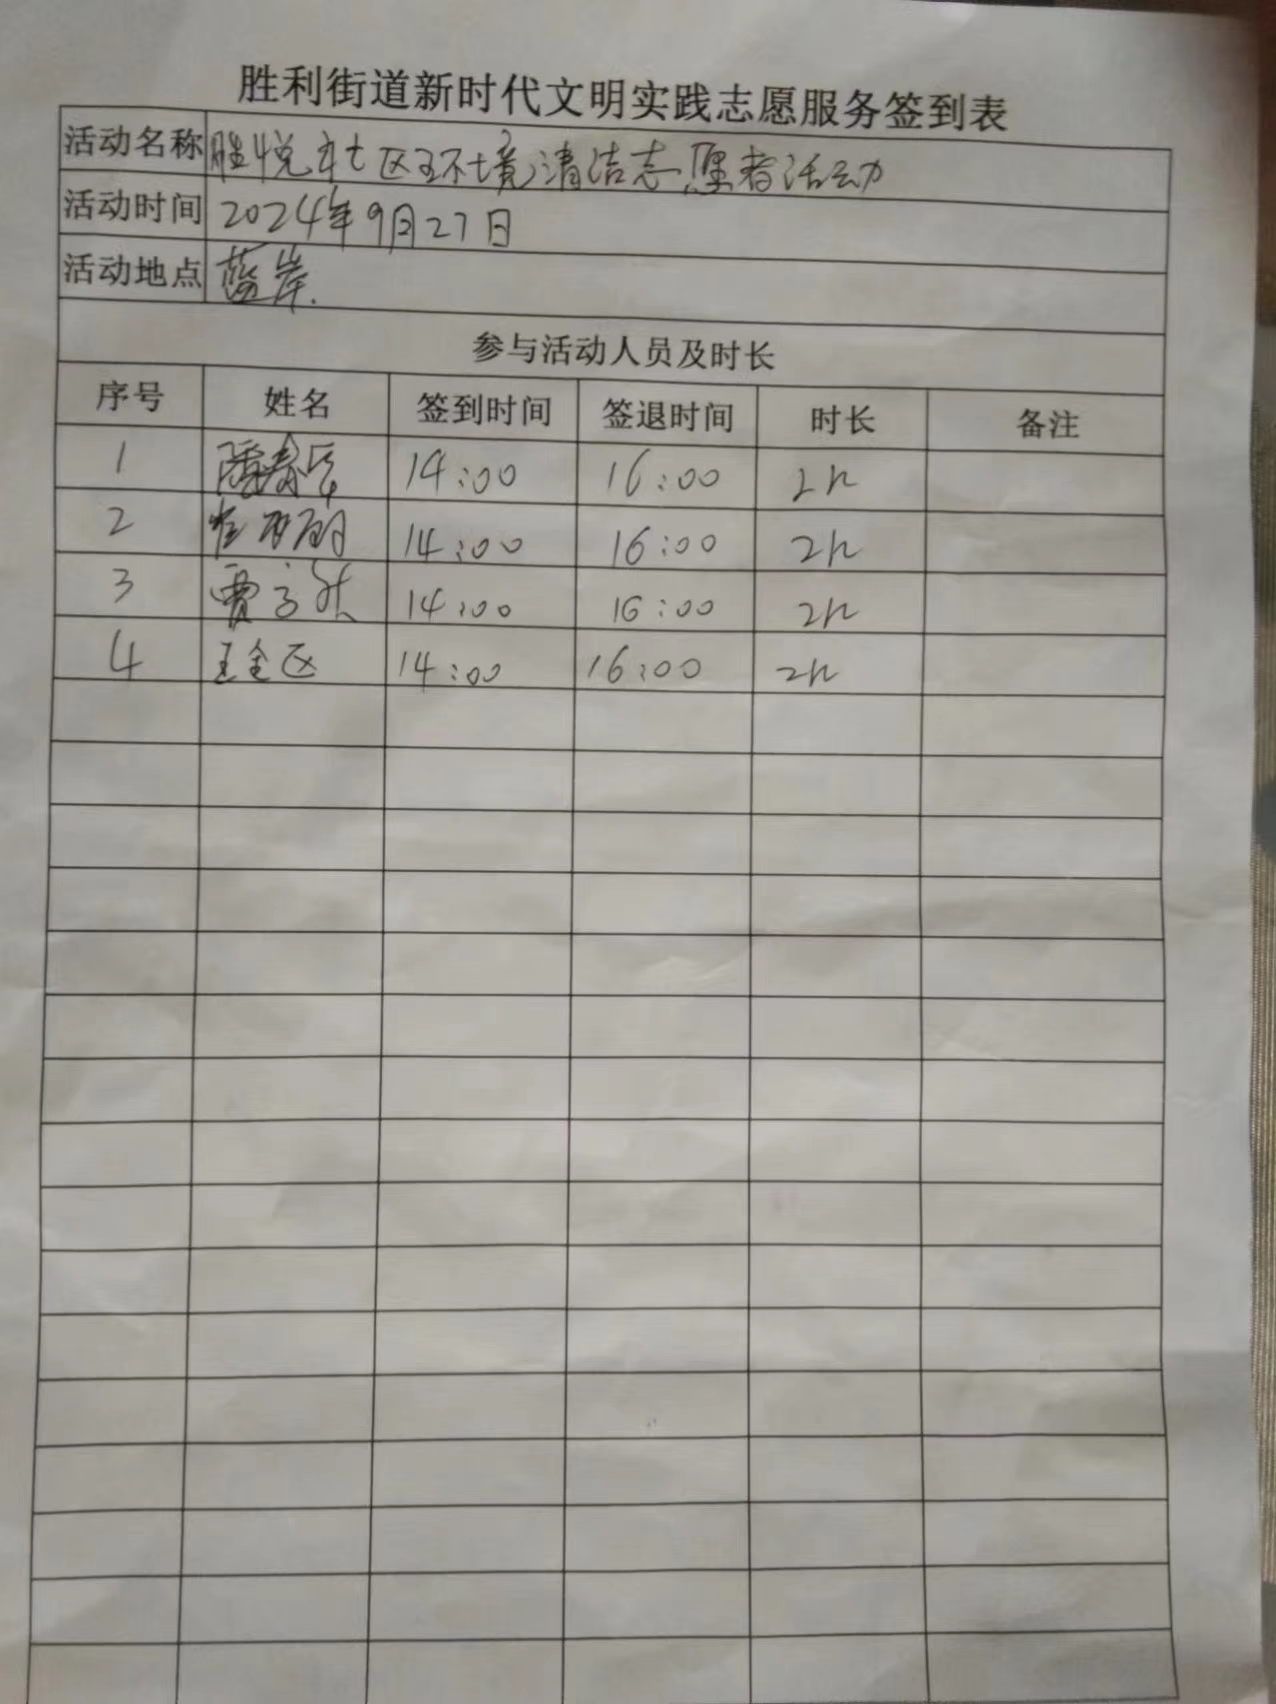 胜利街道新时代文明实践志愿服务签到表
活动名称 胜悦社区环境清洁志愿者活动
活动时间 2024年9月27日
活动地点 蓝岸.
参与活动人员及时长
序号 姓名 签到时间 签退时间 时长 备注
1 14:00 16:00 2h
2 14:00 16:00 2h
3 贾 14:00 16:00 2h
4 王金区 14:00 16:00 2h